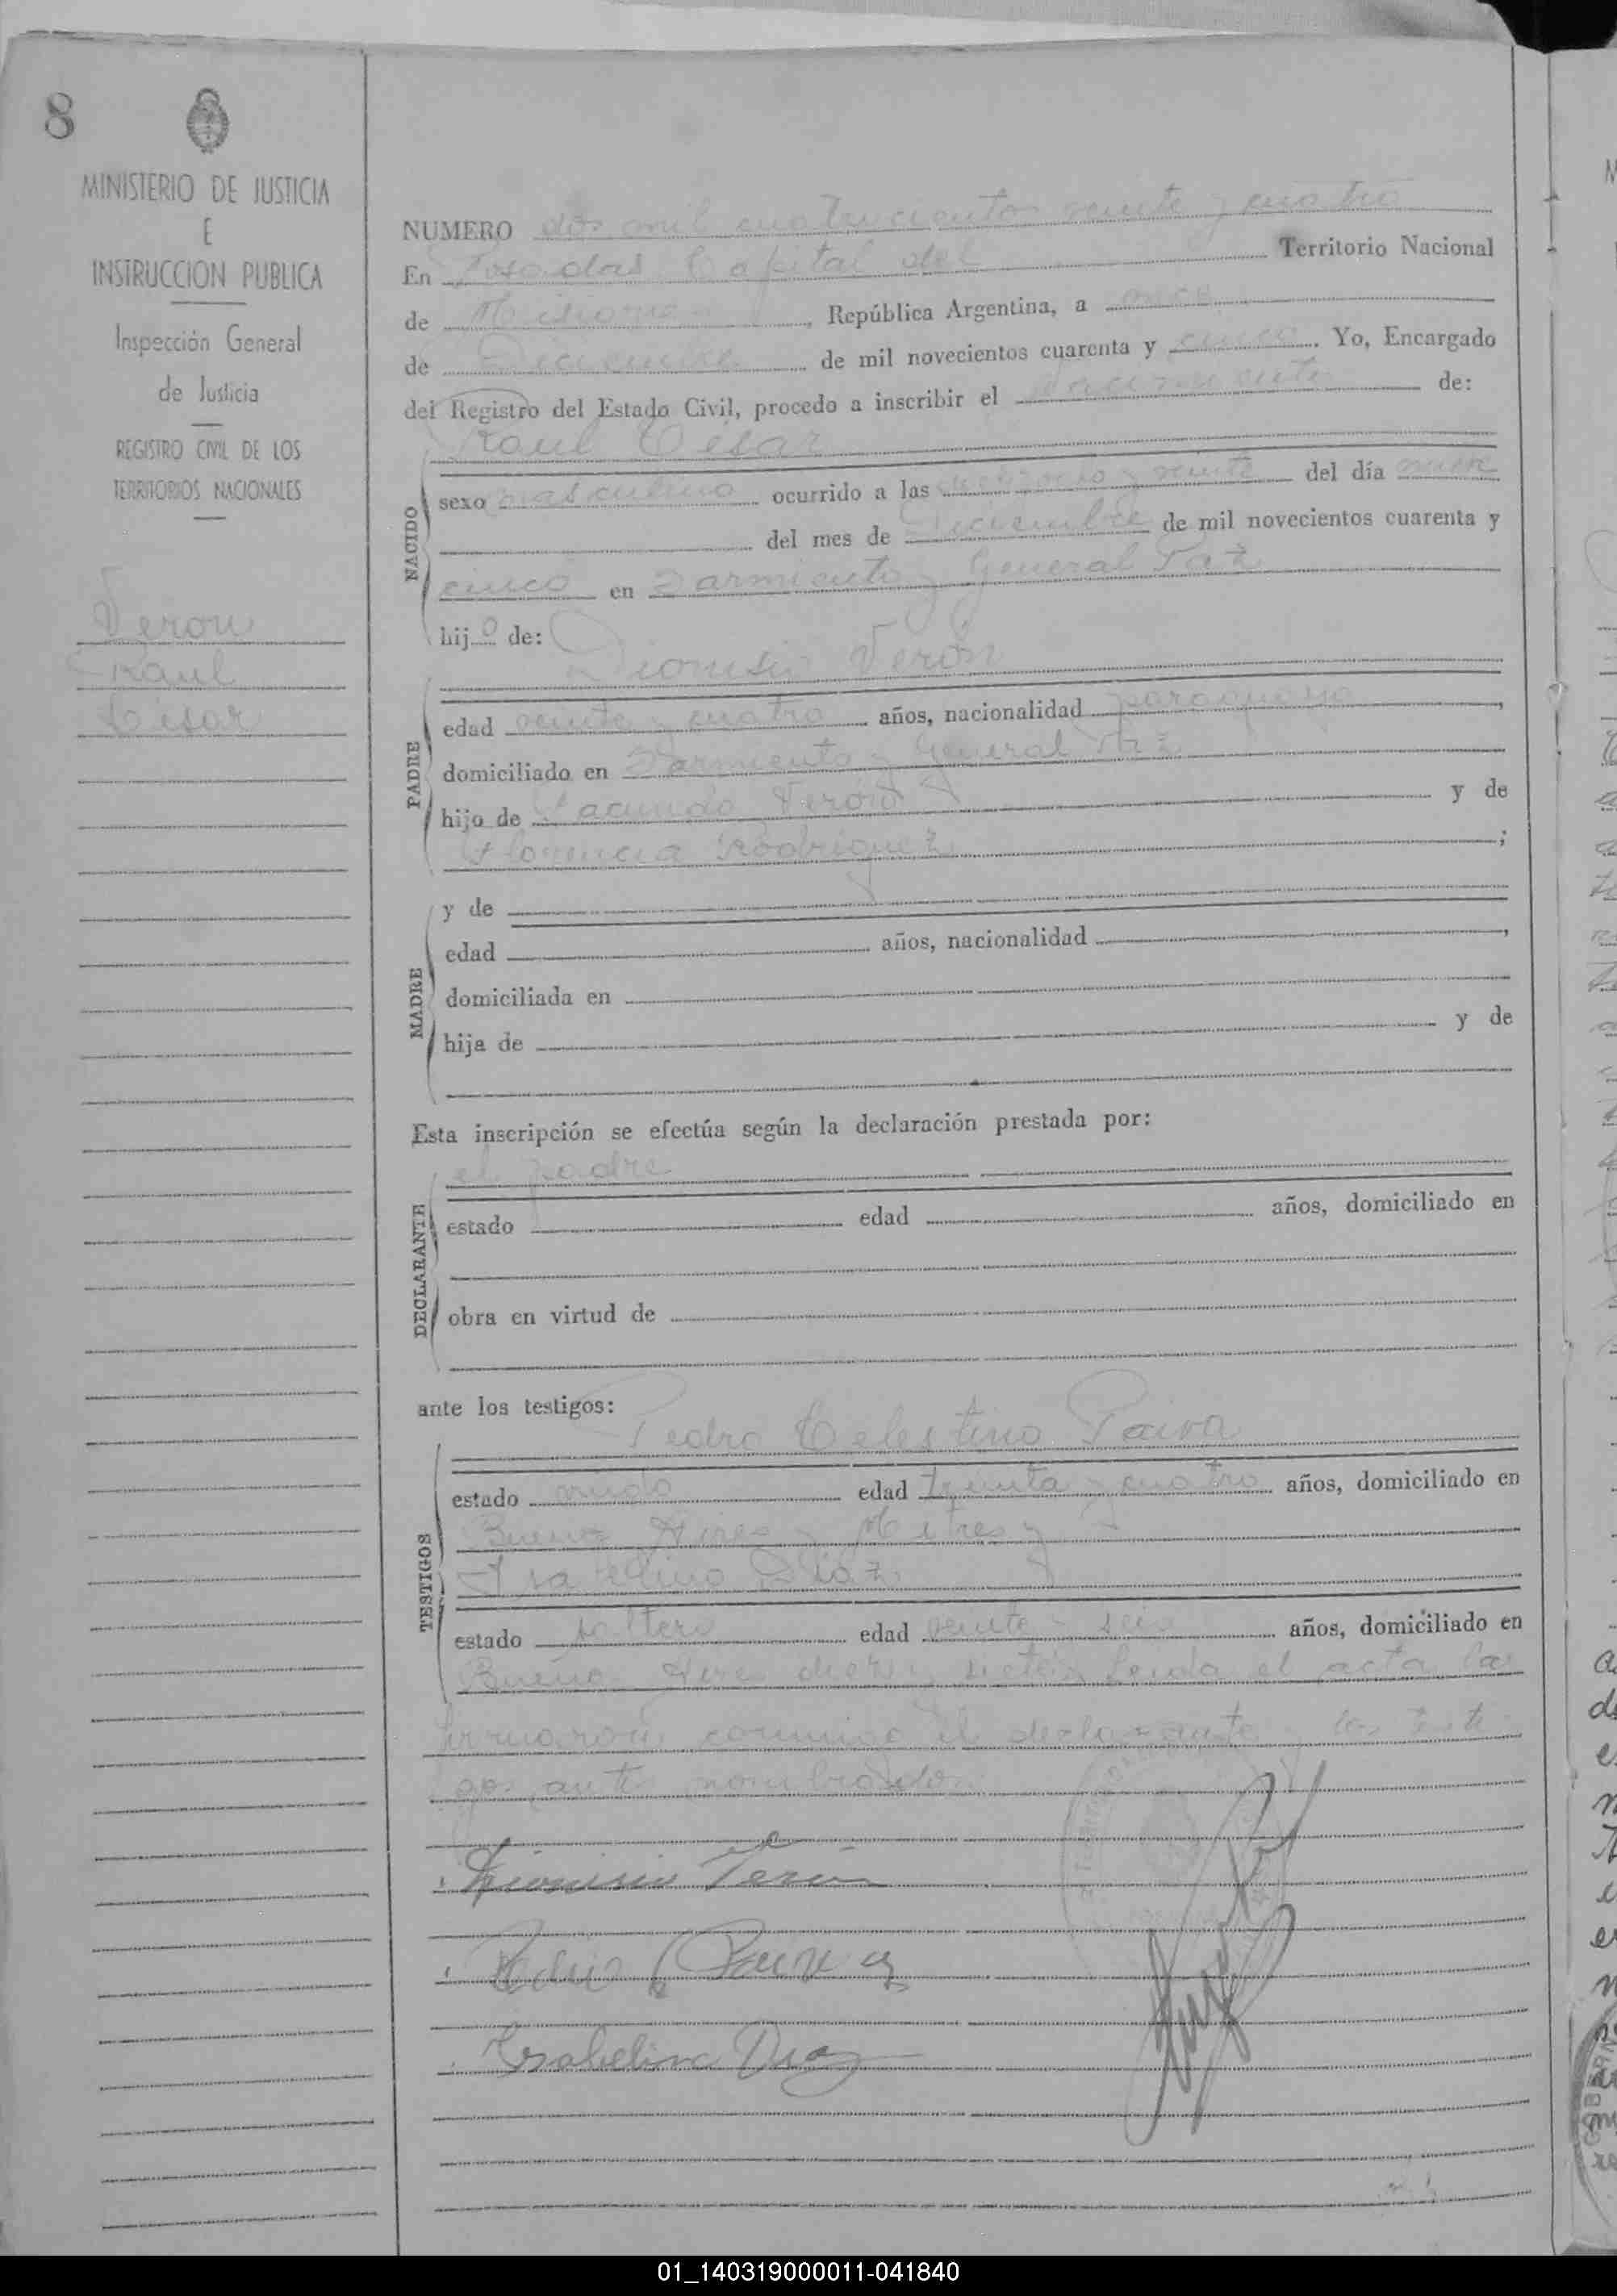 8
MINISTERIO DE JUSTICIA
E
INSTRUCCION PUBLICA
Inspección General
de Justicia
REGISTRO CIVIL DE LOS
TERRITORIOS NACIONALES
Veron
Raul
Cesar
NUMERO dos mil cuatrocientos veinte y cuatro
En Posadas Capital del Territorio Nacional
de Misiones, República Argentina, a once
de Diciembre de mil novecientos cuarenta y cinco. Yo, Encargado
del Registro del Estado Civil, procedo a inscribir el nacimiento de:
Raul Cesar
NACIDO
sexo masculino ocurrido a las y veinte del día nueve
del mes de Diciembre de mil novecientos cuarenta y
cinco en Sarmiento y General Paz
hijo de:
Dionisio Verón
PADRE
edad veinte y cuatro años, nacionalidad paraguayo,
domiciliado en Sarmiento y General Paz
hijo de Facundo Verón y de
Florencia Rodriguez;
MADRE
y de
edad años, nacionalidad,
domiciliada en
hija de y de
Esta inscripción se efectúa según la declaración prestada por:
el padre
DECLARANTE
estado edad años, domiciliado en
obra en virtud de
ante los testigos:
Pedro Celestino Paiva
TESTIGOS
estado viudo edad treinta y cuatro años, domiciliado en
Buenos Aires y Mitre y
Isabelino Diaz
estado soltero edad veinte y seis años, domiciliado en
Buenos Aires diez y siete. Leida el acta la
firmaron conmigo el declarante y los testi
gos antes nombrados.
Dionisio Verón
Pedro C Paiva
Isabelino Diaz
01_140319000011-041840